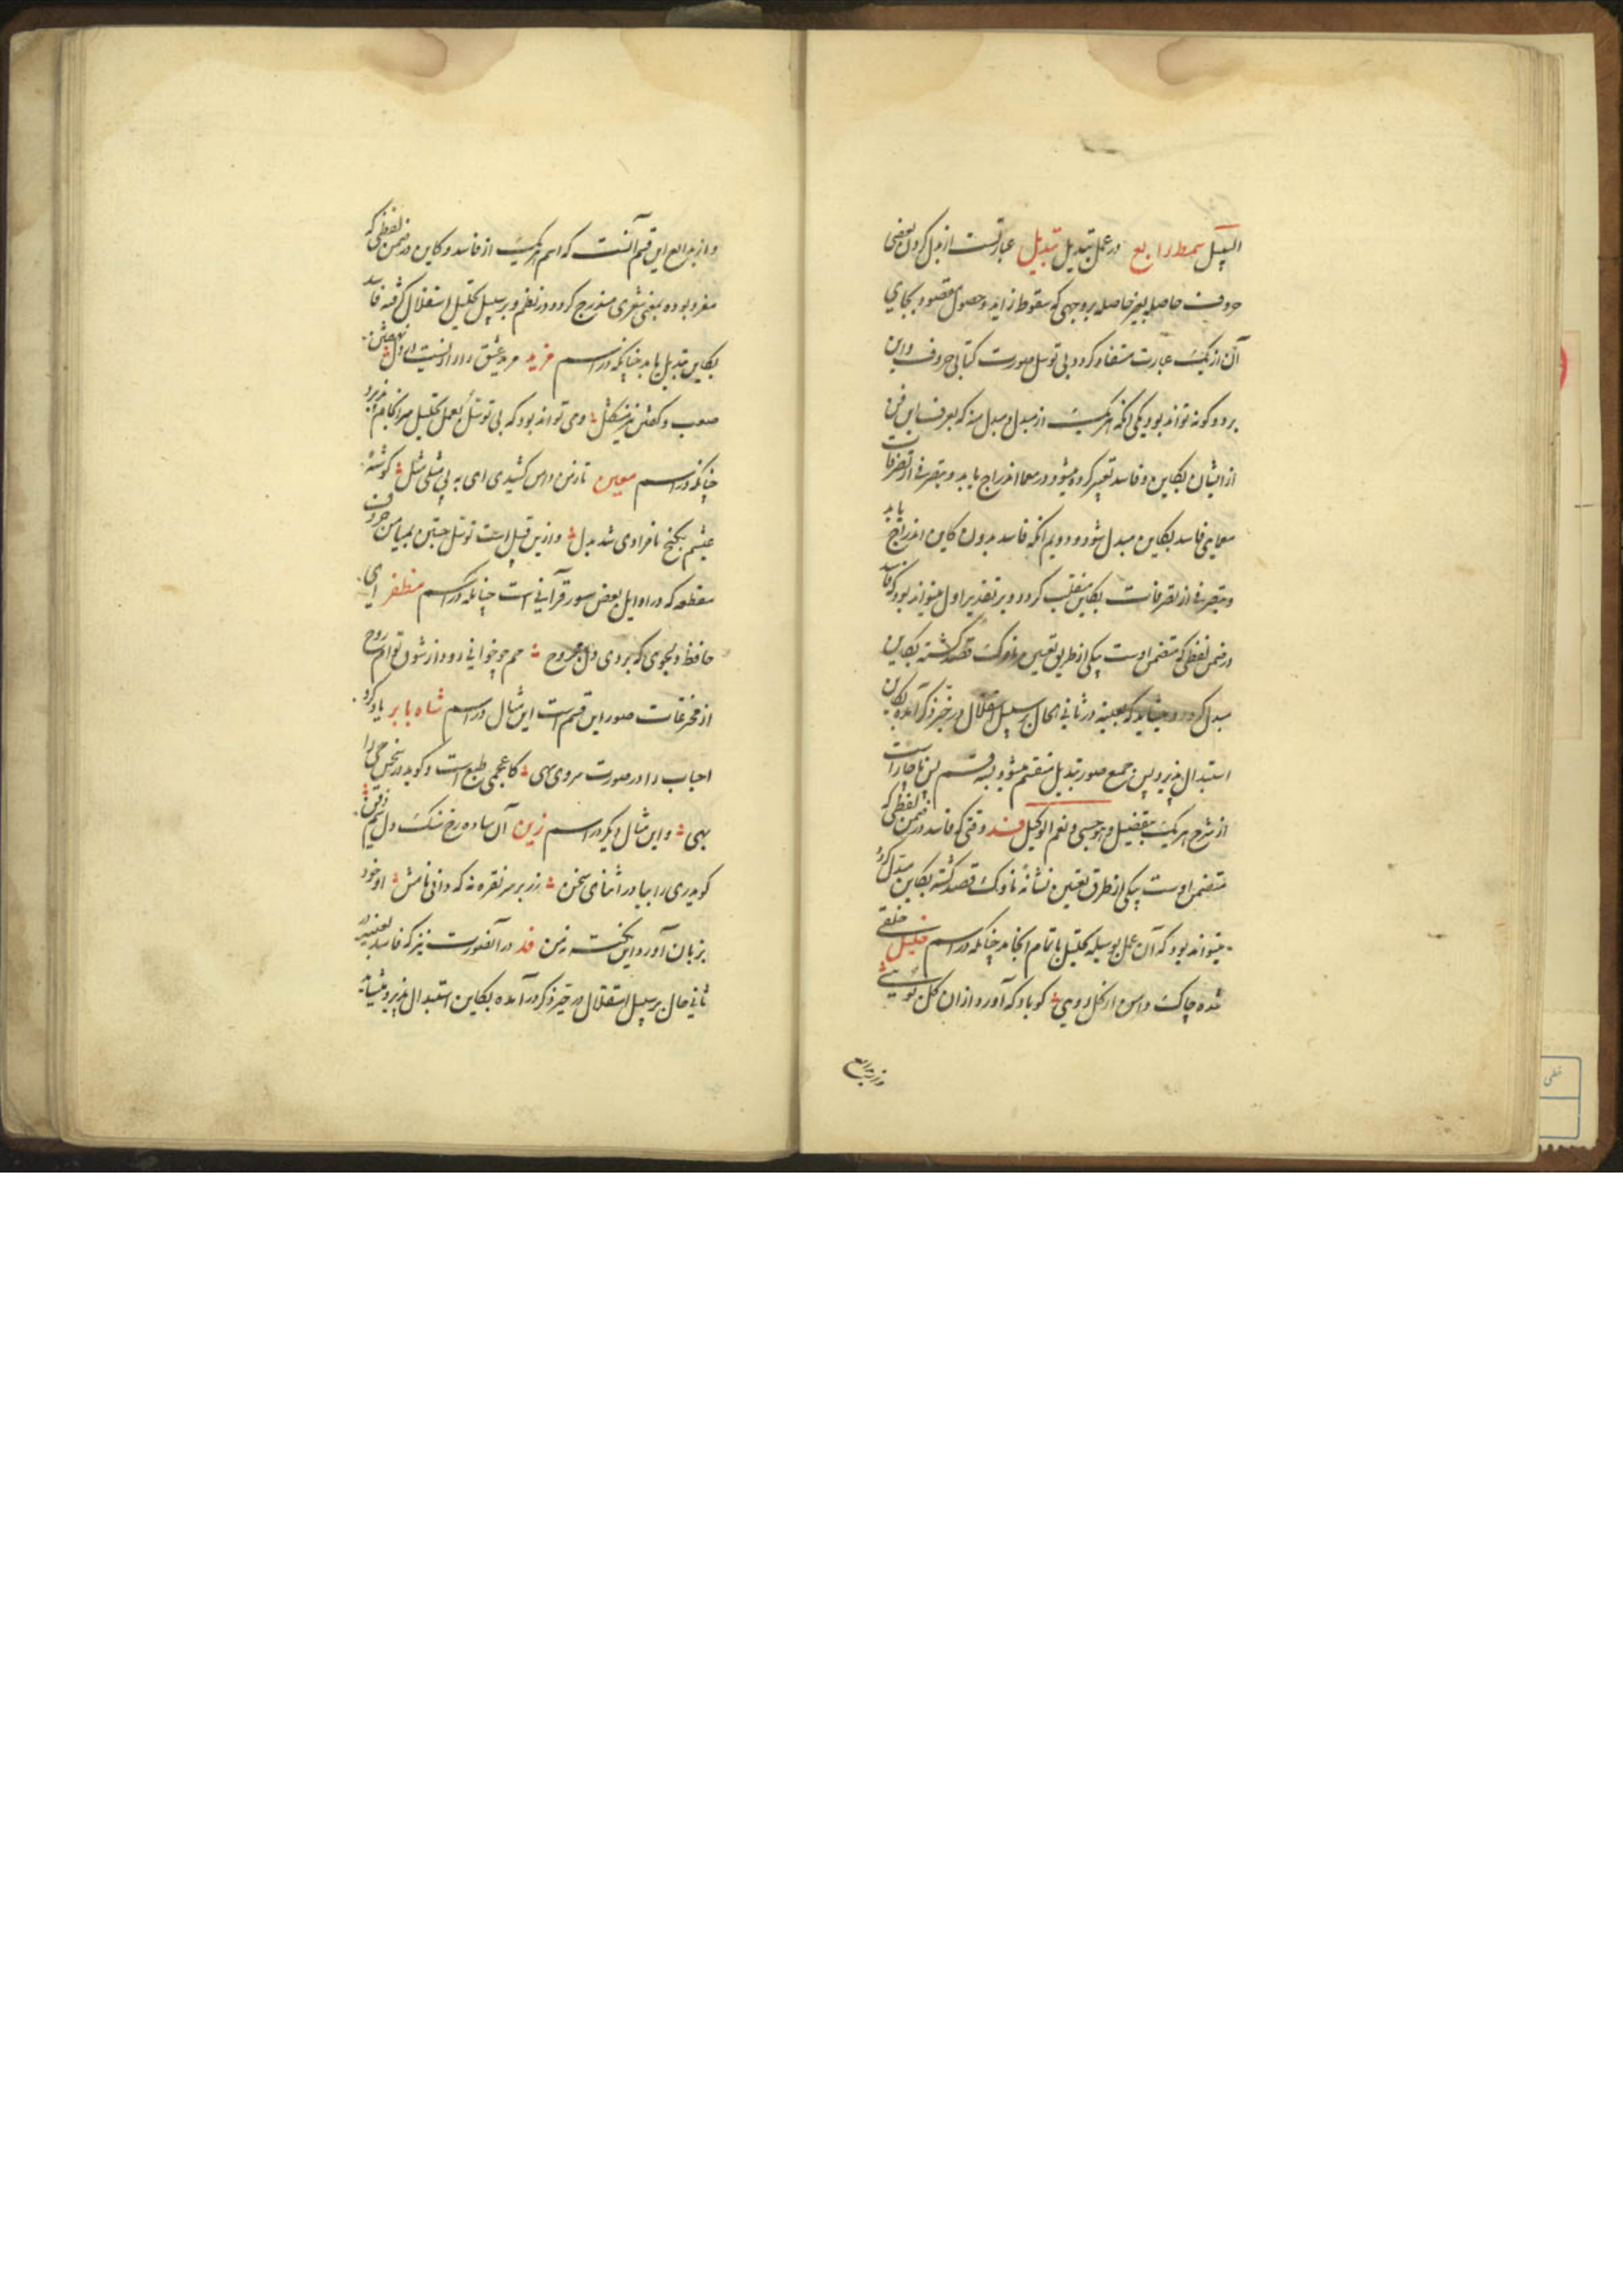 السبیل سمط رابع در عمل تبدیل تبدیل عبارتست از بدل کردن بعضی
حروف حاصله بغیر حاصله بر وجهی که سقوط زاید و حصول مقصود بجای
آن از یک عبارت مستفاد کردد بی توسل صورت کتابی حروف و این
بر دو کونه تواند بود یکی آنکه هر یک از مبدل و مبدل منه که بعرف این فن
از ایشان بکاین و فاسد تعبیر کرده میشود در معما اندراج یابد و بتصرفی از تصرفات
معمایی فاسد بکاین مبدل شود و دویم آنکه فاسد بدون کاین اندراج یابد
و بتصرفی از تصرفات بکاین منقلب کردد و بر تقدیر اول میتواند بود که فاسد
در ضمن لفظی که متضمن اوست یکی از طریق تعیین ناوک قصد کشته بکاین
مبدل کردد و میشاید که بعینه در ثانی الحال بر سبیل استقلال در حیز ذکر آمده بکاین
استبدال پذیرد پس جمیع صور تبدیل منقسم میشود بسه قسم پس ناچار است
از شرح هر یک بتفضیل و هو حسبی و نعم الوکیل وقتی که فاسد در ضمن لفظی که
متضمن اوست بیکی از طرق تعیین نشانهٔ ناوک قصد کشته بکاین مبدل کردد
میتواند بود که آن عمل بوسیله تحلیل باتمام انجامد چنانکه در اسم خلیل خلقی
شده چاک دامن از کل رویی کو باد که آورد از آن کل بویی
و از بدایع این قسم آنست که اسم هر یک از فاسد و کاین در ضمن لفظی که
مفرد بوده بمعنی شعری مندرج کردد در نظم و بر سبیل تحلیل استقلال کرفته فاسد
بکاین تبدیل یابد چنانکه در اسم فرید مرد عشق
صعب و کفتن نیز مشکل و می تواند بود که بی توسل بعمل تحلیل سرانجام پذیرد
چنانکه در اسم معین نازنین دامن کشیدی ای به بی مثلی مثل کوشهٔ
چشم بکنج نامرادی شد بدل و از این قبیل است توسل جستن بمیامن حروف
مقطعه که در اوایل بعض سور قرآنی است چنانکه در اسم مظفر ای
حافظ دلجوی که بردی دل مجروح حم چو خوانی رود از شوق توام روح
از مخترعات صور این قسم است این مثال در اسم شاه بابر یاد کرد
احباب را در صورت سروی سهی کاعجمی طبع است و کوید در سخن حی را
بهی و این مثال دیکر در اسم زین آن ساده رخ سنک دل سیم ذقن
کو پدری را بیا در اثنای سخن زر بر سر نقره نه که دانی نامش او خود
بزبان آورد این نکته ز من در آنصورت نیز که فاسد بعینه در
ثانی حال بر سبیل استقلال در حیز ذکر در آمده بکاین استبدال پذیرد میشاید